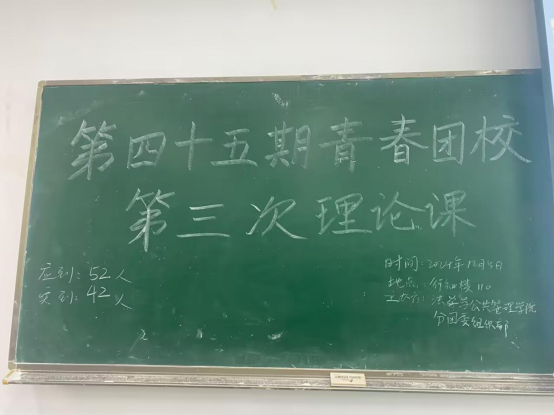 第四十五期青春团校
第三次理论课
应到：52人
实到：42人
时间：2024年12月5日
地点：行知楼110
法学与公共管理学院
分团委组织部